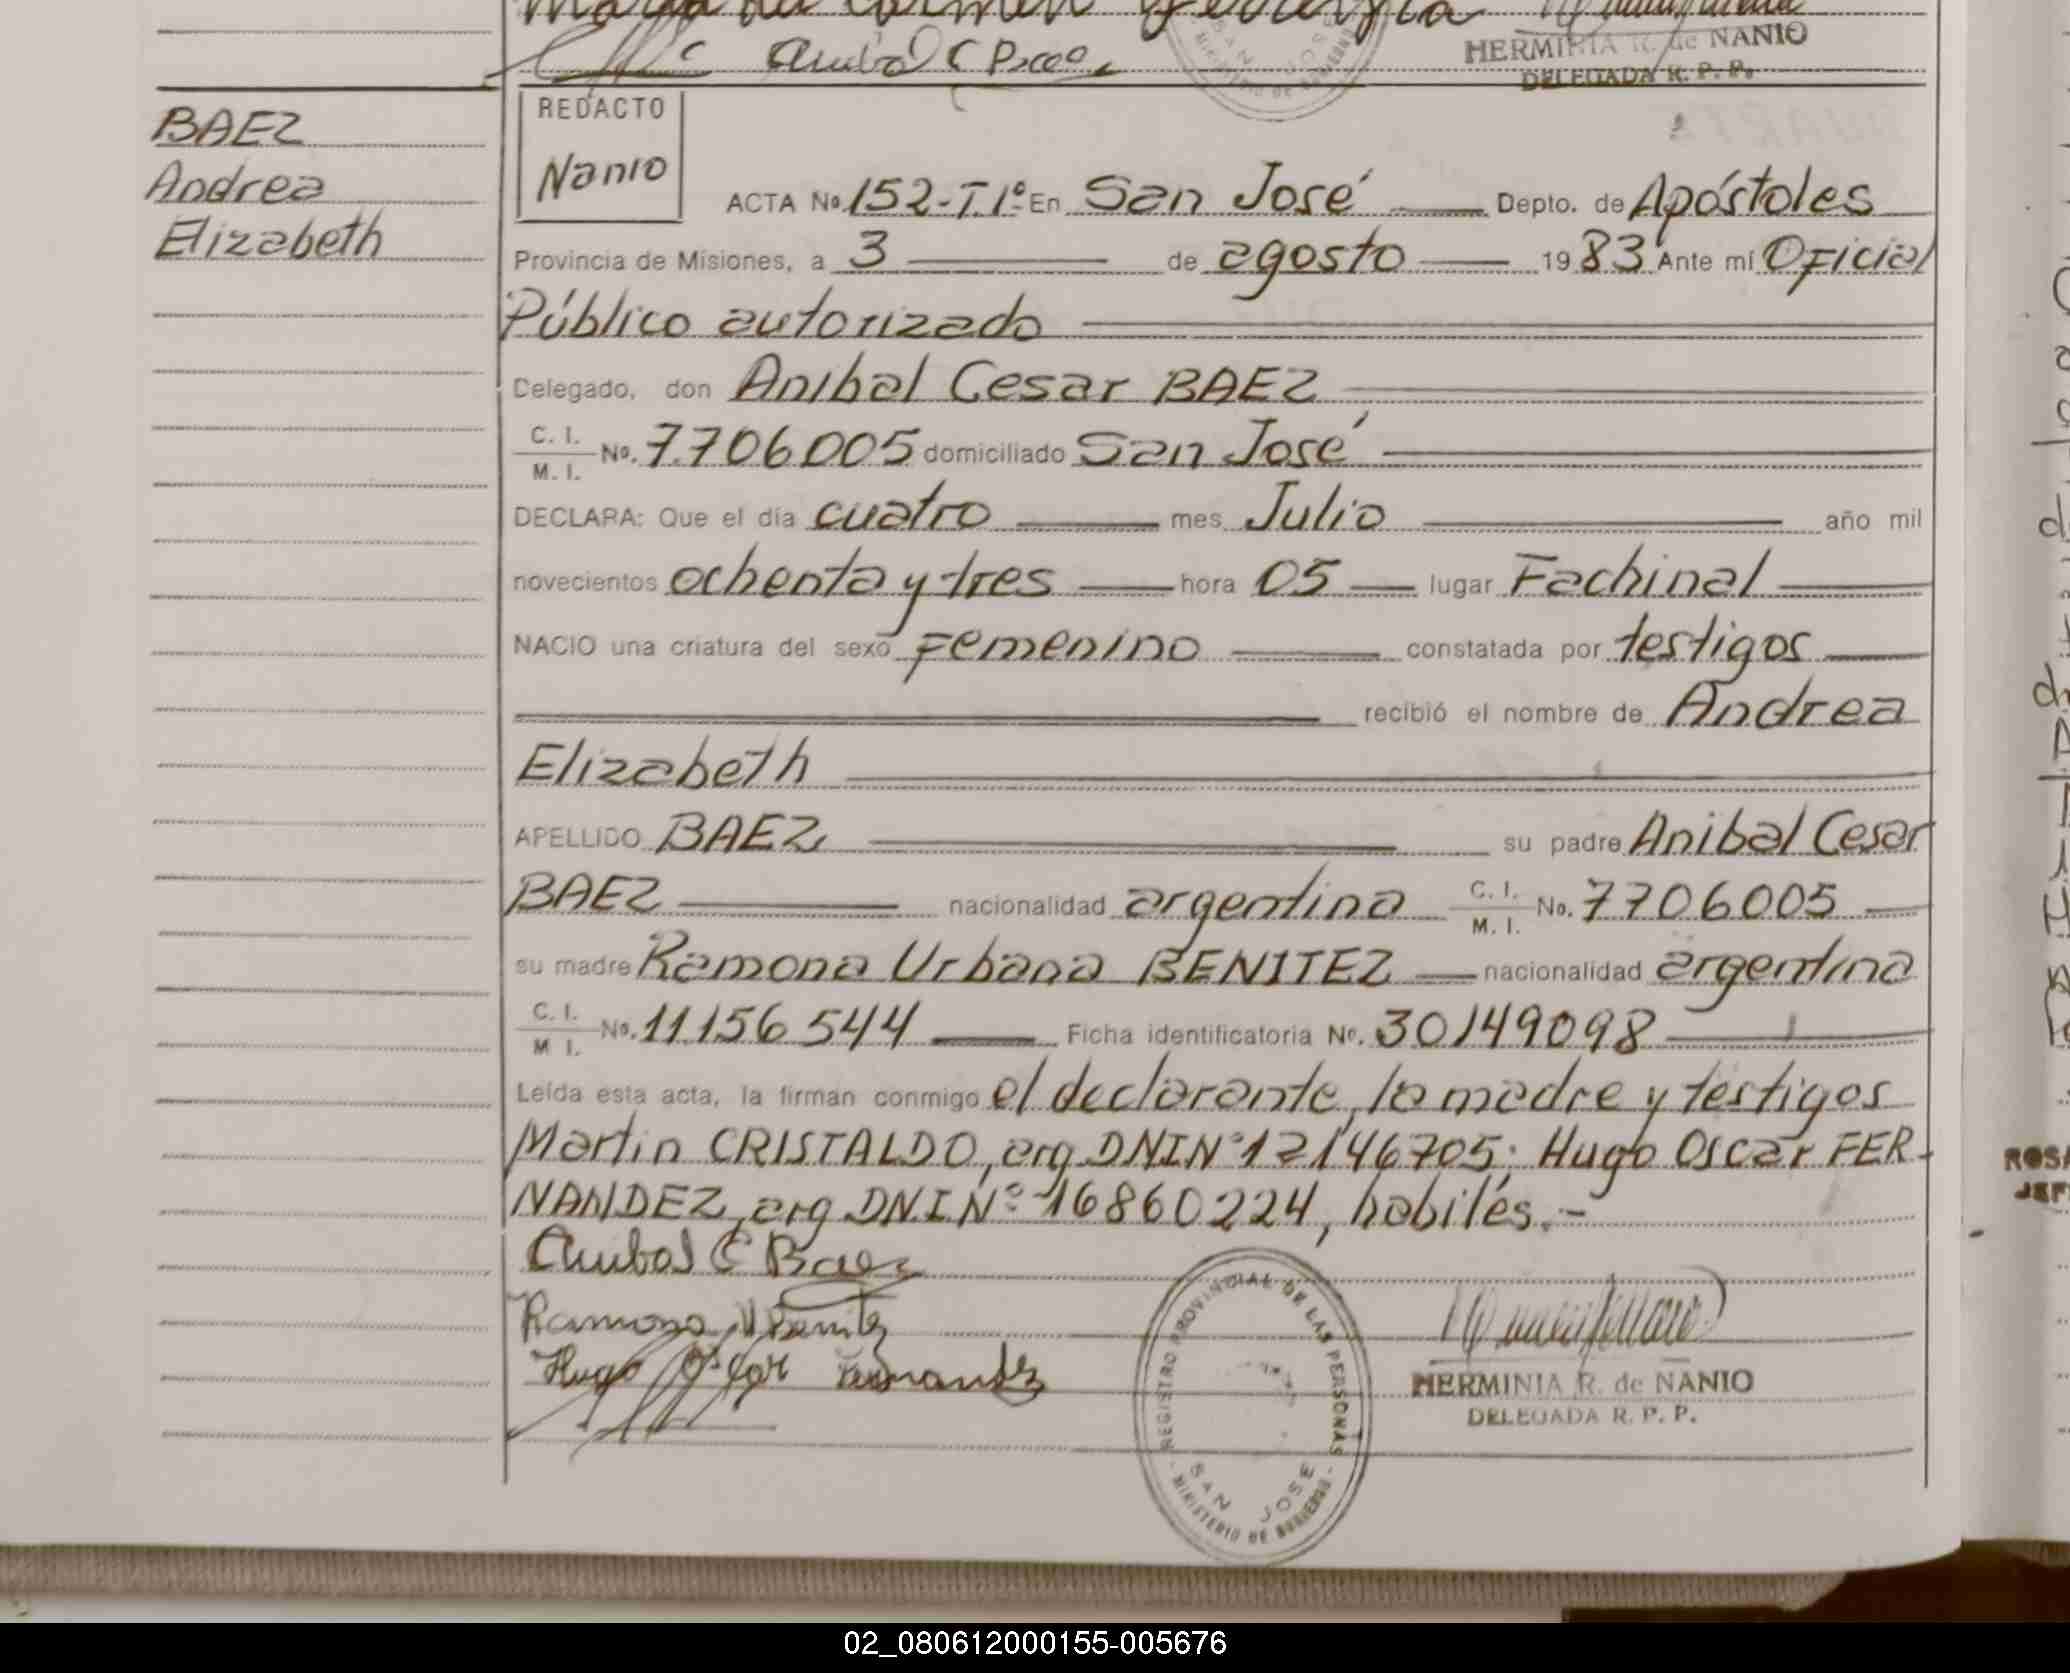 Anibal C Baez
HERMINIA R. de NANIO
DELEGADA R. P. P.
BAEZ
Andrea
Elizabeth
REDACTO
Nanio
ACTA No. 152-T.1º En San José Depto. de Apóstoles
Provincia de Misiones, a 3 de agosto 1983 Ante mí Oficial
Público autorizado
Delegado, don Anibal Cesar BAEZ
C. I.
M. I. No. 7.706005 domiciliado San José
DECLARA: Que el día cuatro mes Julio año mil
novecientos ochenta y tres hora 05 lugar Fachinal
NACIO una criatura del sexo Femenino constatada por testigos
recibió el nombre de Andrea
Elizabeth
APELLIDO BAEZ su padre Anibal Cesar
BAEZ nacionalidad argentina C. I. M. I. No. 7706005
su madre Ramona Urbana BENITEZ nacionalidad argentina
C. I. M I. No. 11.156 544 Ficha identificatoria No. 30149098
Leída esta acta, la firman conmigo el declarante, la madre y testigos
Martin CRISTALDO, arg DNIN° 12146705; Hugo Oscar FER-
NANDEZ, arg DN.I.N° 16860224, habiles.-
Anibal C Baez
Ramona U Benitez
Hugo Oscar Fernandez
REGISTRO PROVINCIAL DE LAS PERSONAS
SAN JOSE
MINISTERIO DE GOBIERNO
HERMINIA R. de NANIO
DELEGADA R. P. P.
02_080612000155-005676